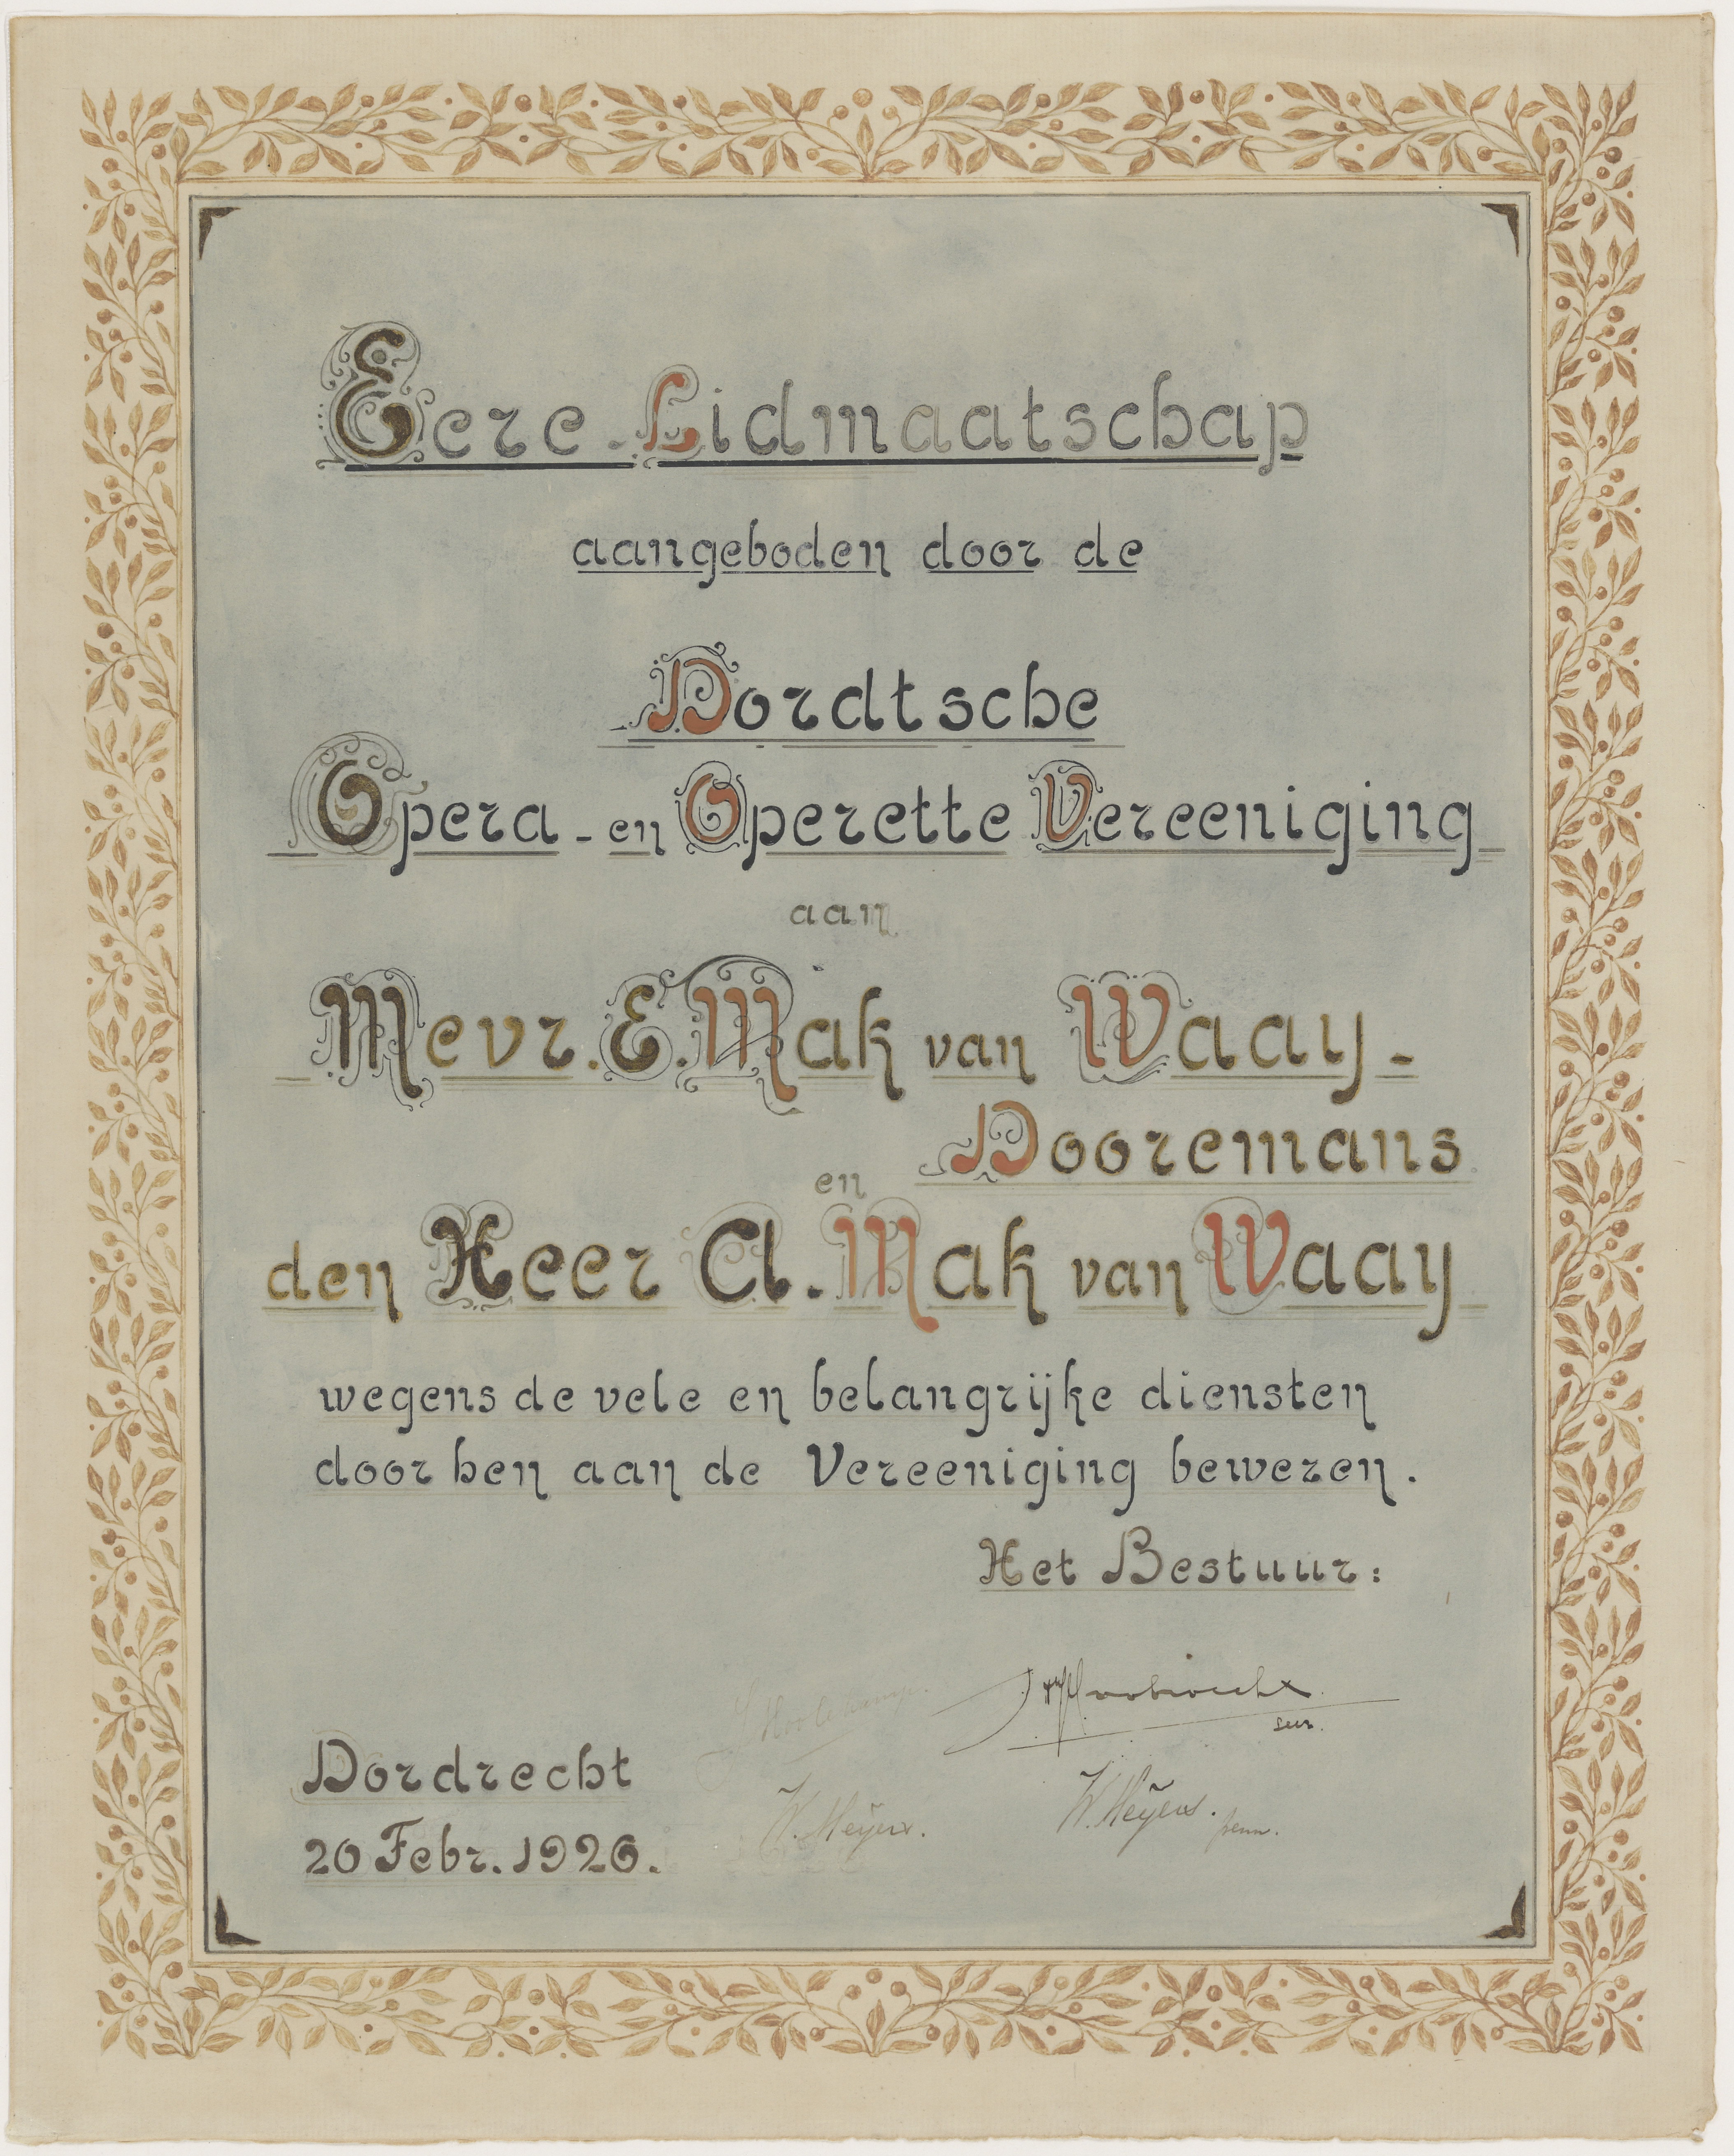 Eere-Lidmaatschap
aangeboden door de
Dordtsche
Opera-en Operette Vereeniging
aan
Mevr. E. Mak van Waay-
Dooremans
en
den Heer A. Mak van Waay
wegens de vele en belangrijke diensten
door hen aan de Vereeniging bewezen.
Het Bestuur:
secr.
Dordrecht
W. Meyers.
W. Meyers. penn.
20 Febr. 1926.